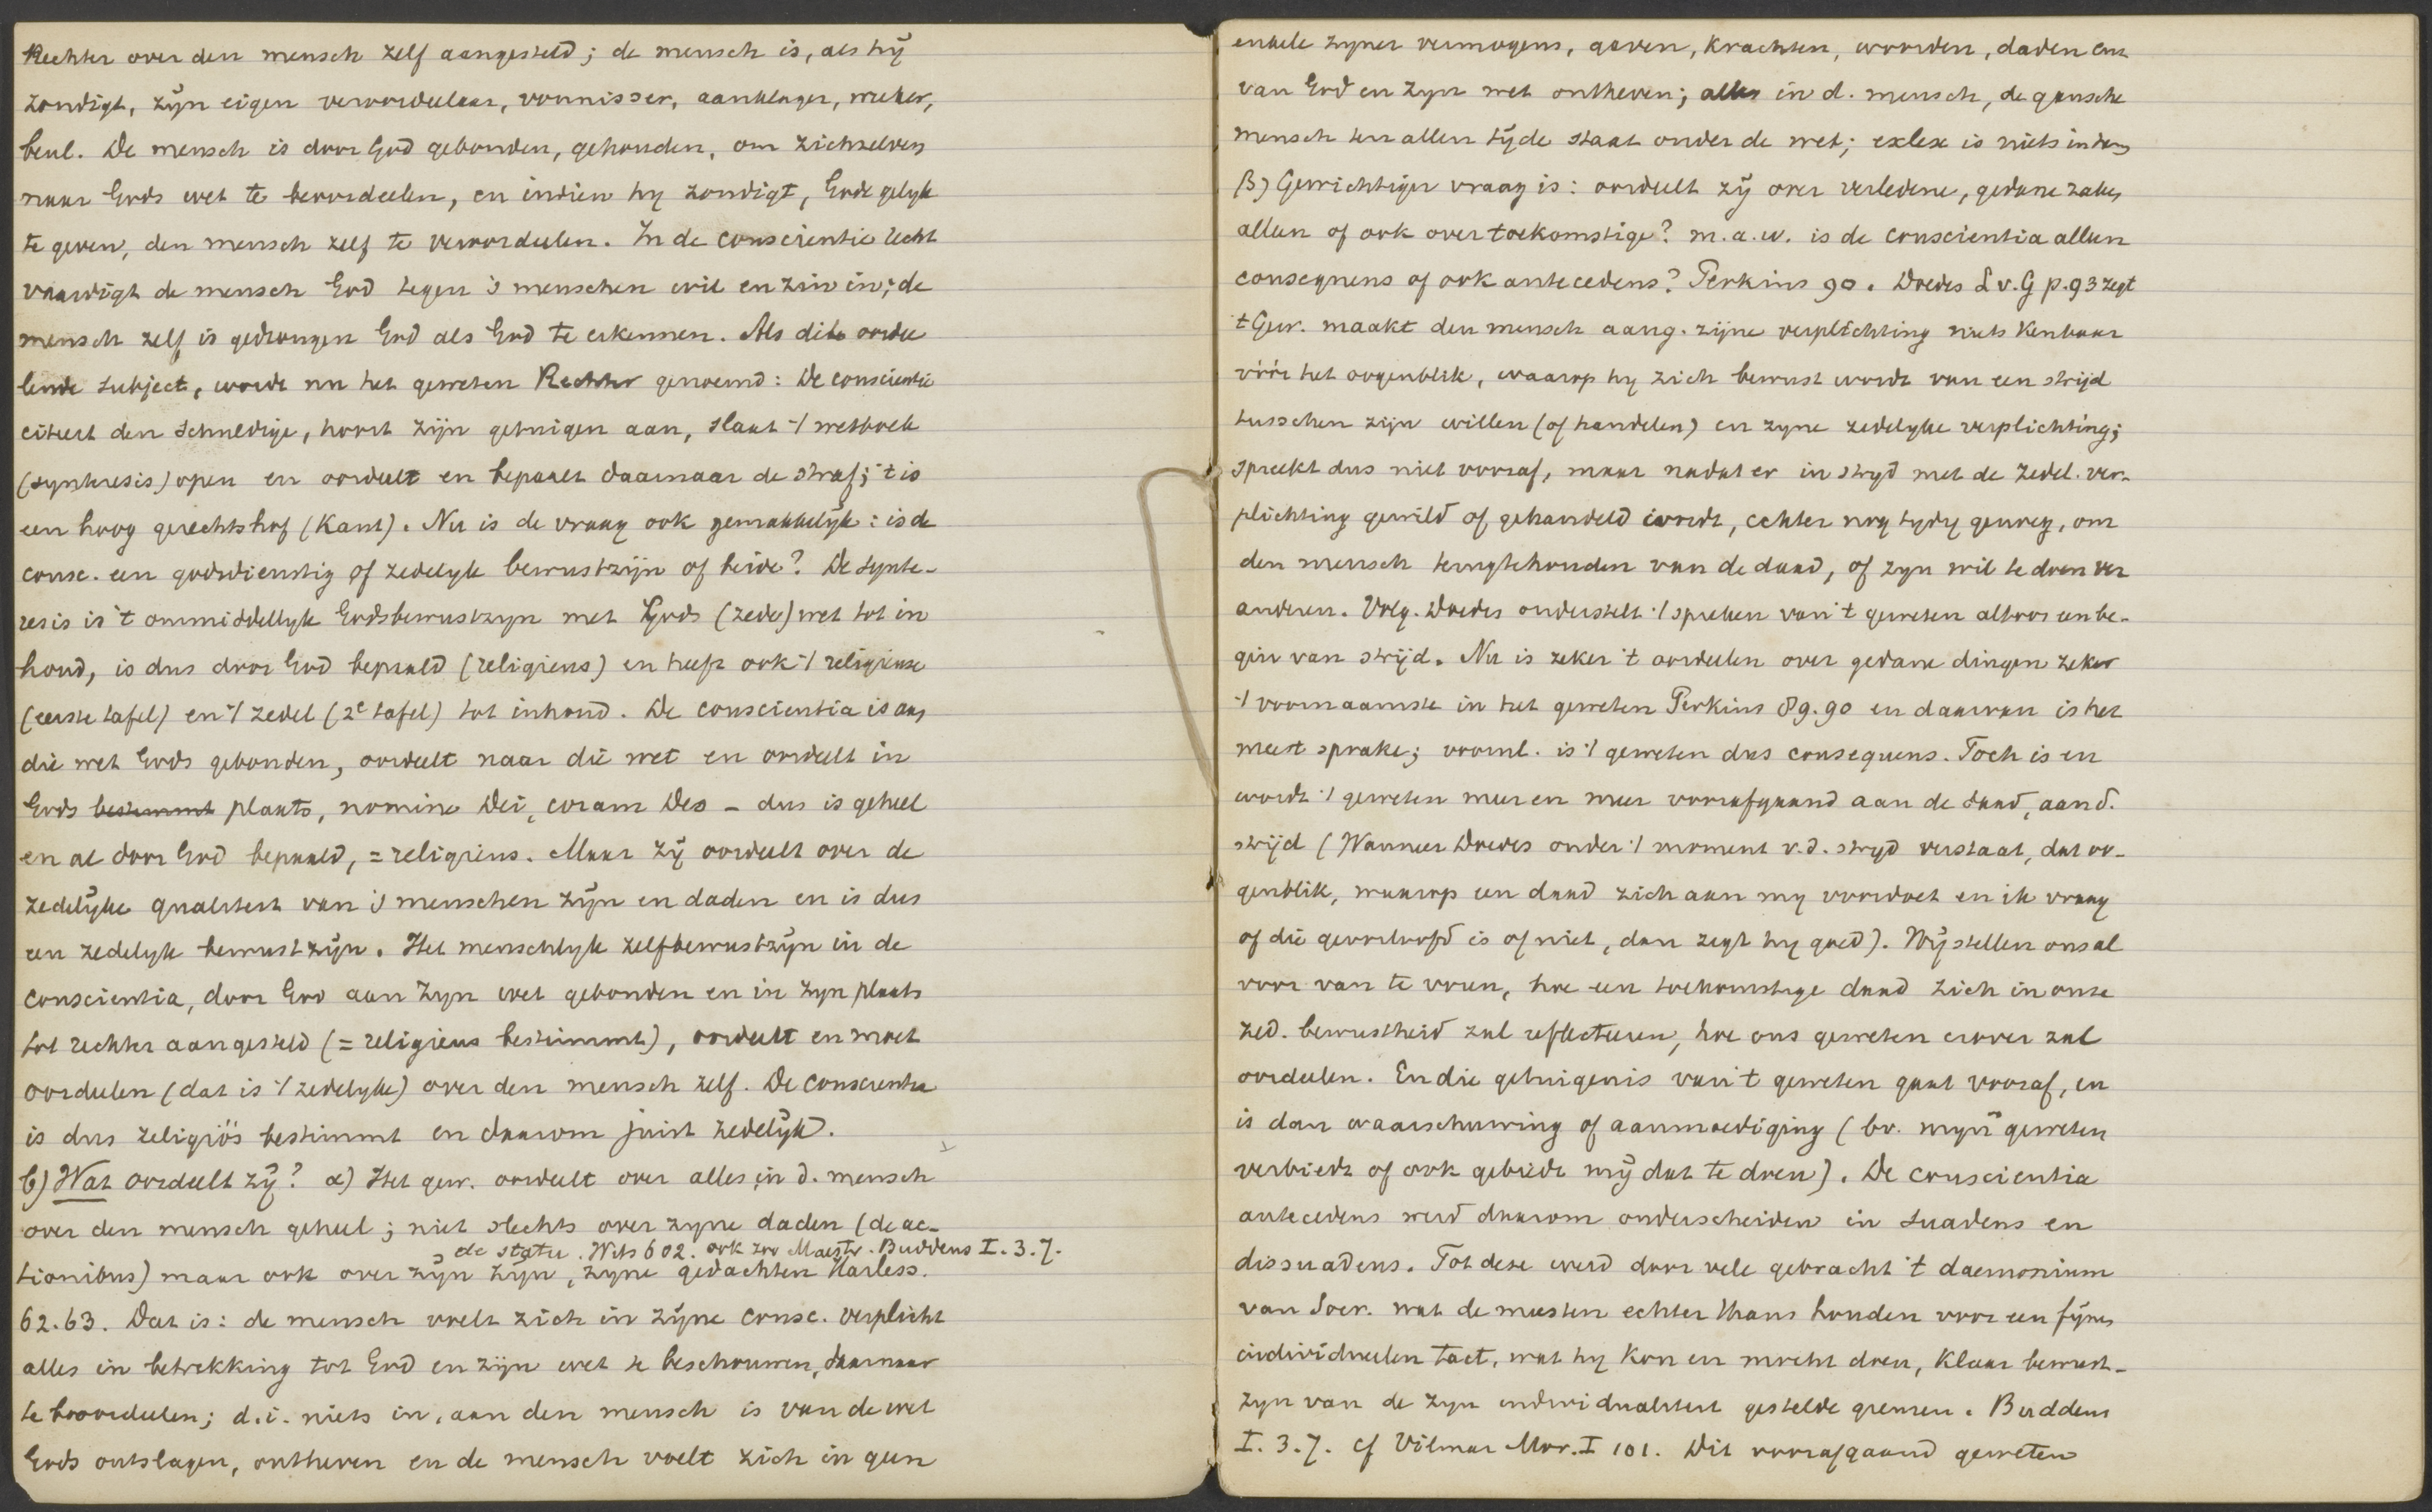 Rechter over den mensch zelf aangesteld; de mensch is, als hij
zondigt, zijn eigen veroordeelaar, vonnisser, aanklager, wreker,
beul. De mensch is door God gebonden, gehouden, om zichzelven
naar Gods wet te beoordeelen, en indien hy zondigt, Gode gelyk
te geven, den mensch zelf te veroordeelen. In de conscientie recht
vaardigt de mensch God tegen 's menschen wil en zin in; de
mensch zelf is gedrongen God als God te erkennen. Als dit oordee
lende subject, wordt nu het geweten Rechter genoemd: De conscientie
citeert den schuldige, hoort zijn getuigen aan, slaat 't wetboek
(synteresis) open en oordeelt en bepaalt daarnaar de straf; 't is
een hoog gerechtshof (Kant). Nu is de vraag ook gemakkelijk: is de
consc. een godsdienstig of zedelyk bewustzijn of beide? De synte-
resis is 't onmiddellyk Godsbewustzyn met Gods (zede)wet tot in
houd, is dus door God bepaald (religieus) en heeft ook 't religieuse
(eerste tafel) en 't zedel (2e tafel) tot inhoud. De conscientia is aan
die wet Gods gebonden, oordeelt naar die wet en oordeelt in
Gods bestimmt plaats, nomine Dei, coram Deo - dus is geheel
en al door God bepaald, = religieus. Maar zij oordeelt over de
zedelijke qualiteit van 's menschen zijn en daden en is dus
een zedelyk bewustzijn. Het menschlyk zelfbewustzijn in de
conscientia, door God aan zyn wet gebonden en in zyn plaats
tot rechter aangesteld (= religieus bestimmt), oordeelt en moet
oordeelen (dat is 't zedelyke) over den mensch zelf. De conscientia
is dus religiös bestimmt en daarom juist zedelijk.
b) Wat oordeelt zij? α) Het gew. oordeelt over alles in d. mensch
over den mensch geheel; niet slechts over zyne daden (de ac-
de statu. Wits 602. ook zoo Maestr. Buddeus I. 3. 7.
tionibus) maar ook over zijn zijn, zyne gedachten Harless.
62.63. Dat is: de mensch voelt zich in zijne consc. verplicht
alles in betrekking tot God en zijn wet te beschouwen, daarnaar
te beoordeelen; d.i. niets in, aan den mensch is van de wet
Gods ontslagen, ontheven en de mensch voelt zich in geen
enkele zyner vermogens, gaven, krachten, woorden, daden enz
van God en zyn wet ontheven; alles in d. mensch, de gansche
mensch ten allen tijde staat onder de wet; exlex is niets in hem
β) Gewichtiger vraag is: oordeelt zij over verledene, gedane zaken
alleen of ook over toekomstige? m.a.w. is de conscientia alleen
consequens of ook antecedens? Perkins 90. Doedes L v. G p. 93 zegt
't Gew. maakt den mensch aang. zijne verplichting niets kenbaar
vóór het oogenblik, waarop hy zich bewust wordt van een strijd
tusschen zijn willen (of handelen) en zyne zedelyke verplichting;
spreekt dus niet vooraf, maar nadat er in stryd met de zedel. ver-
plichting gewild of gehandeld wordt, echter nog tydig genoeg, om
den mensch terugtehouden van de daad, of zyn wil te doen ver
anderen. Volg. Doedes onderstelt 't spreken van 't geweten altoos een be-
gin van strijd. Nu is zeker 't oordeelen over gedane dingen zeker
't voornaamste in het geweten Perkins 89.90 en daarvan is het
meest sprake; voorml. is 't geweten dus consequens. Toch is en
wordt 't geweten meer en meer voorafgaand aan de daad, aan d.
strijd (Wanneer Doedes onder 't moment v.d. stryd verstaat, dat oo-
genblik, waarop een daad zich aan my voordoet en ik vraag
of die geoorloofd is of niet, dan zegt hy goed). Wij stellen ons al
voor van te voren, hoe een toekomstige daad zich in onze
zed. bewustheid zal reflecteeren, hoe ons geweten erover zal
oordeelen. En die getuigenis van 't geweten gaat vooraf, en
is dan waarschuwing of aanmoediging (bv. mijn geweten
verbiedt of ook gebiedt mij dat te doen). De conscientia
antecedens werd daarom onderscheiden in suadens en
dissuadens. Tot deze werd door vele gebracht 't daemonium
van Socr. wat de meesten echter thans houden voor een fijnen
individueelen tact, wat hy kon en mocht doen, klaar bewust-
zyn van de zyn individualiteit gestelde grenzen. Buddeus
I. 3. 7. cf Vilmar Mor. I 101. Dit voorafgaand geweten